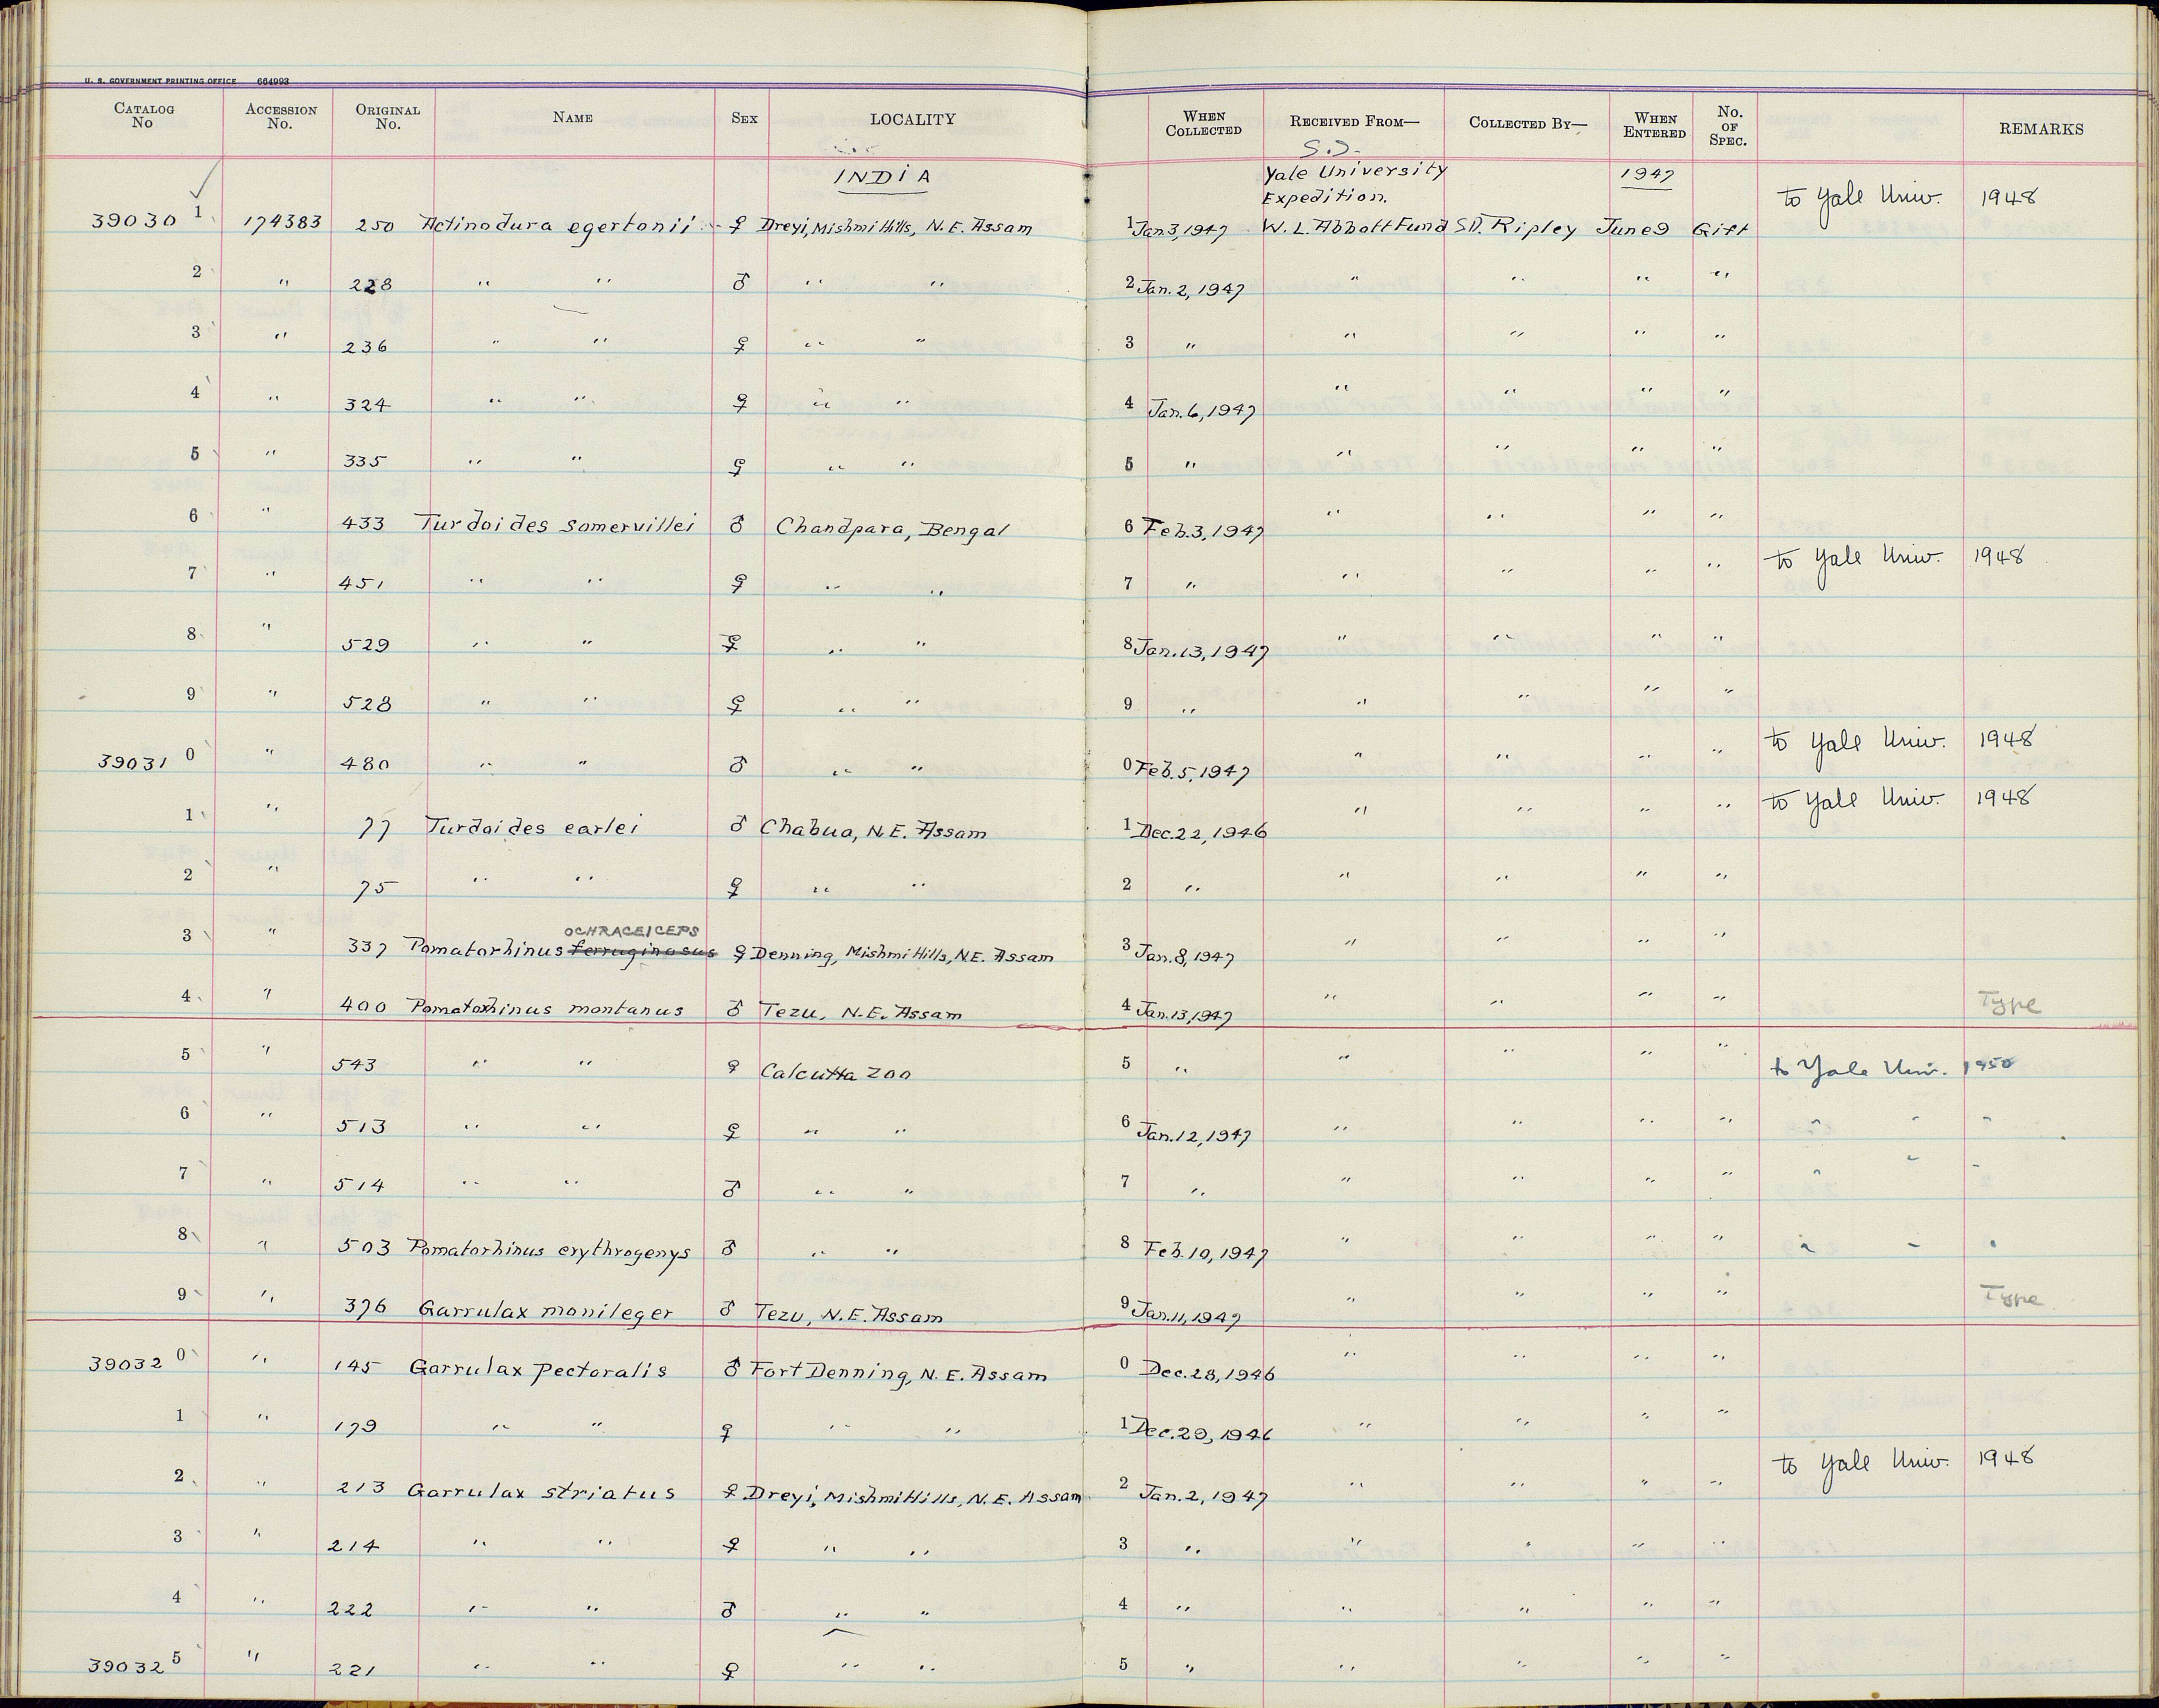 U. S. GOVERNMENT PRINTING OFFICE 664993
CATALOG No ACCESSION No. ORIGINAL No. NAME SEX LOCALITY WHEN COLLECTED RECEIVED FROM— COLLECTED BY— WHEN ENTERED No. OF SPEC. REMARKS
S.D.
INDIA Yale University Expedition. 1947
39030 1 174383 250 Actinodura egertonii ♀ Dreyi, Mishmi Hills, N.E. Assam 1 Jan 3, 1947 W. L. Abbott Fund S.D. Ripley June 9 Gift to Yale Univ. 1948
2 " 228 " " ♂ " " 2 Jan. 2, 1947 " " " "
3 " 236 " " ♀ " " 3 " " " " "
4 " 324 " " ♀ " " 4 Jan. 6, 1947 " " " "
5 " 335 " " ♀ " " 5 " " " " "
6 " 433 Turdoides somervillei ♂ Chandpara, Bengal 6 Feb. 3, 1947 " " " "
7 " 451 " " ♀ " " 7 " " " " " to Yale Univ. 1948
8 " 529 " " ♀ " " 8 Jan. 13, 1947 " " " "
9 " 528 " " ♀ " " 9 " " " " "
39031 0 " 480 " " ♂ " " 0 Feb. 5, 1947 " " " " to Yale Univ. 1948
1 " 77 Turdoides earlei ♂ Chabua, N.E. Assam 1 Dec. 22, 1946 " " " " to Yale Univ. 1948
2 " 75 " " ♀ " " 2 " " " " "
OCHRACEICEPS
3 " 337 Pomatorhinus ferruginosus ♀ Denning, Mishmi Hills, N.E. Assam 3 Jan. 8, 1947 " " " "
4 " 400 Pomatorhinus montanus ♂ Tezu, N.E. Assam 4 Jan. 13, 1947 " " " " Type
5 " 543 " " ♀ Calcutta Zoo 5 " " " " " to Yale Univ. 1950
6 " 513 " " ♀ " " 6 Jan. 12, 1947 " " " " " " "
7 " 514 " " ♂ " " 7 " " " " " " " "
8 " 503 Pomatorhinus erythrogenys ♂ " " 8 Feb. 10, 1947 " " " " " " "
9 " 376 Garrulax monileger ♂ Tezu, N.E. Assam 9 Jan. 11, 1947 " " " " Type
39032 0 " 145 Garrulax pectoralis ♂ Fort Denning, N.E. Assam 0 Dec. 28, 1946 " " " "
1 " 179 " " ♀ " " 1 Dec. 29, 1946 " " " "
2 " 213 Garrulax striatus ♀ Dreyi, Mishmi Hills, N.E. Assam 2 Jan. 2, 1947 " " " " to Yale Univ. 1948
3 " 214 " " ♀ " " 3 " " " " "
4 " 222 " " ♂ " " 4 " " " " "
39032 5 " 221 " " ♀ " " 5 " " " " "